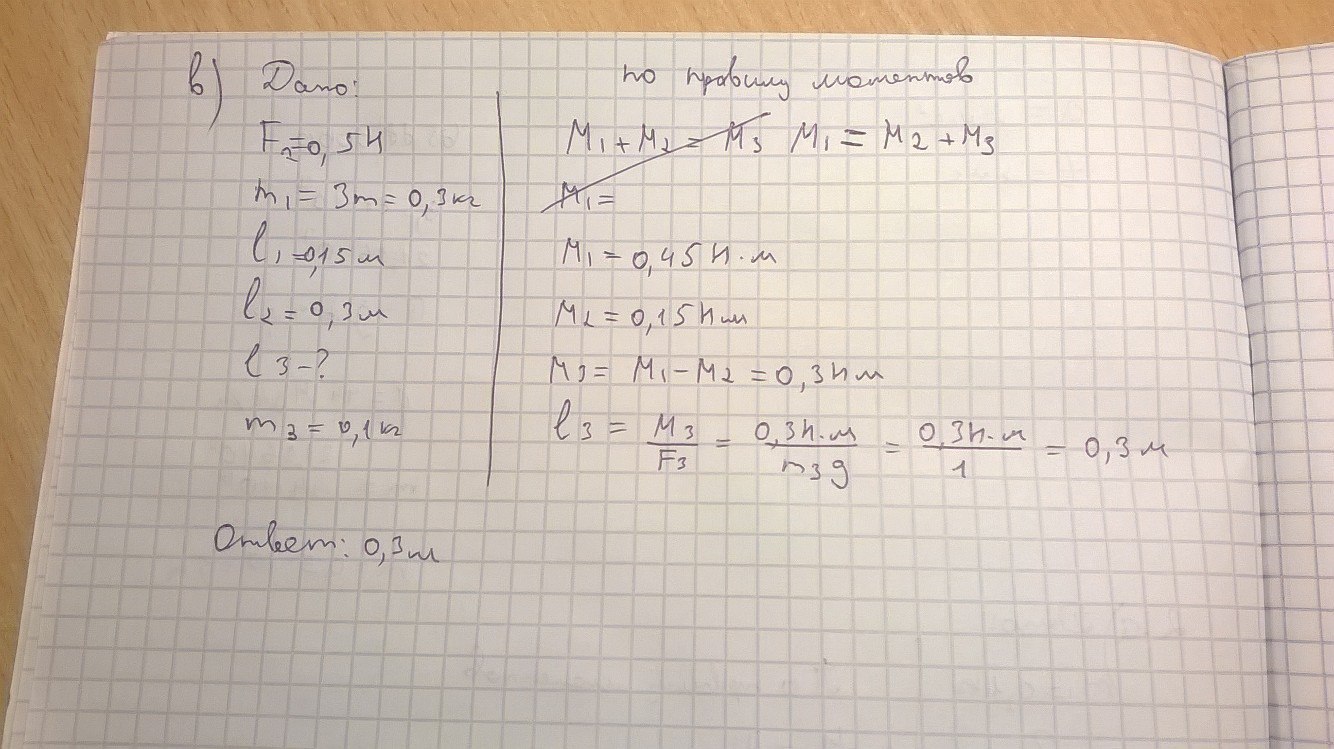 в) Дано:
F₂=0,5Н
m₁ = 3m = 0,3кг
l₁=0,15м
l₂ = 0,3м
l3 - ?
m₃ = 0,1кг
по правилу моментов
M₁ + M₂ = M₃ M₁ = M₂ + M₃
M₁ =
M₁ = 0,45 Н·м
M₂ = 0,15Нм
M₃ = M₁ - M₂ = 0,3Нм
l₃ = M₃/F₃ = 0,3Н·м/m₃g = 0,3Н·м/1 = 0,3м
Ответ: 0,3м